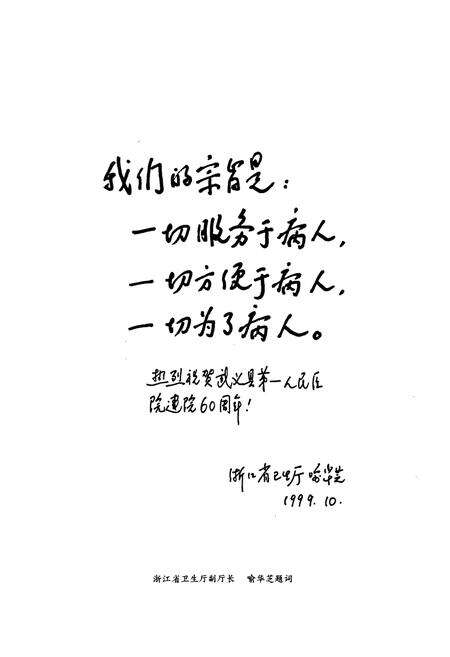 我们的宗旨是：
一切服务于病人，
一切方便于病人，
一切为了病人。
热烈祝贺武义县第一人民医
院建院60周年！
浙江省卫生厅 喻华芝
1999.10.
浙江省卫生厅副厅长　喻华芝题词